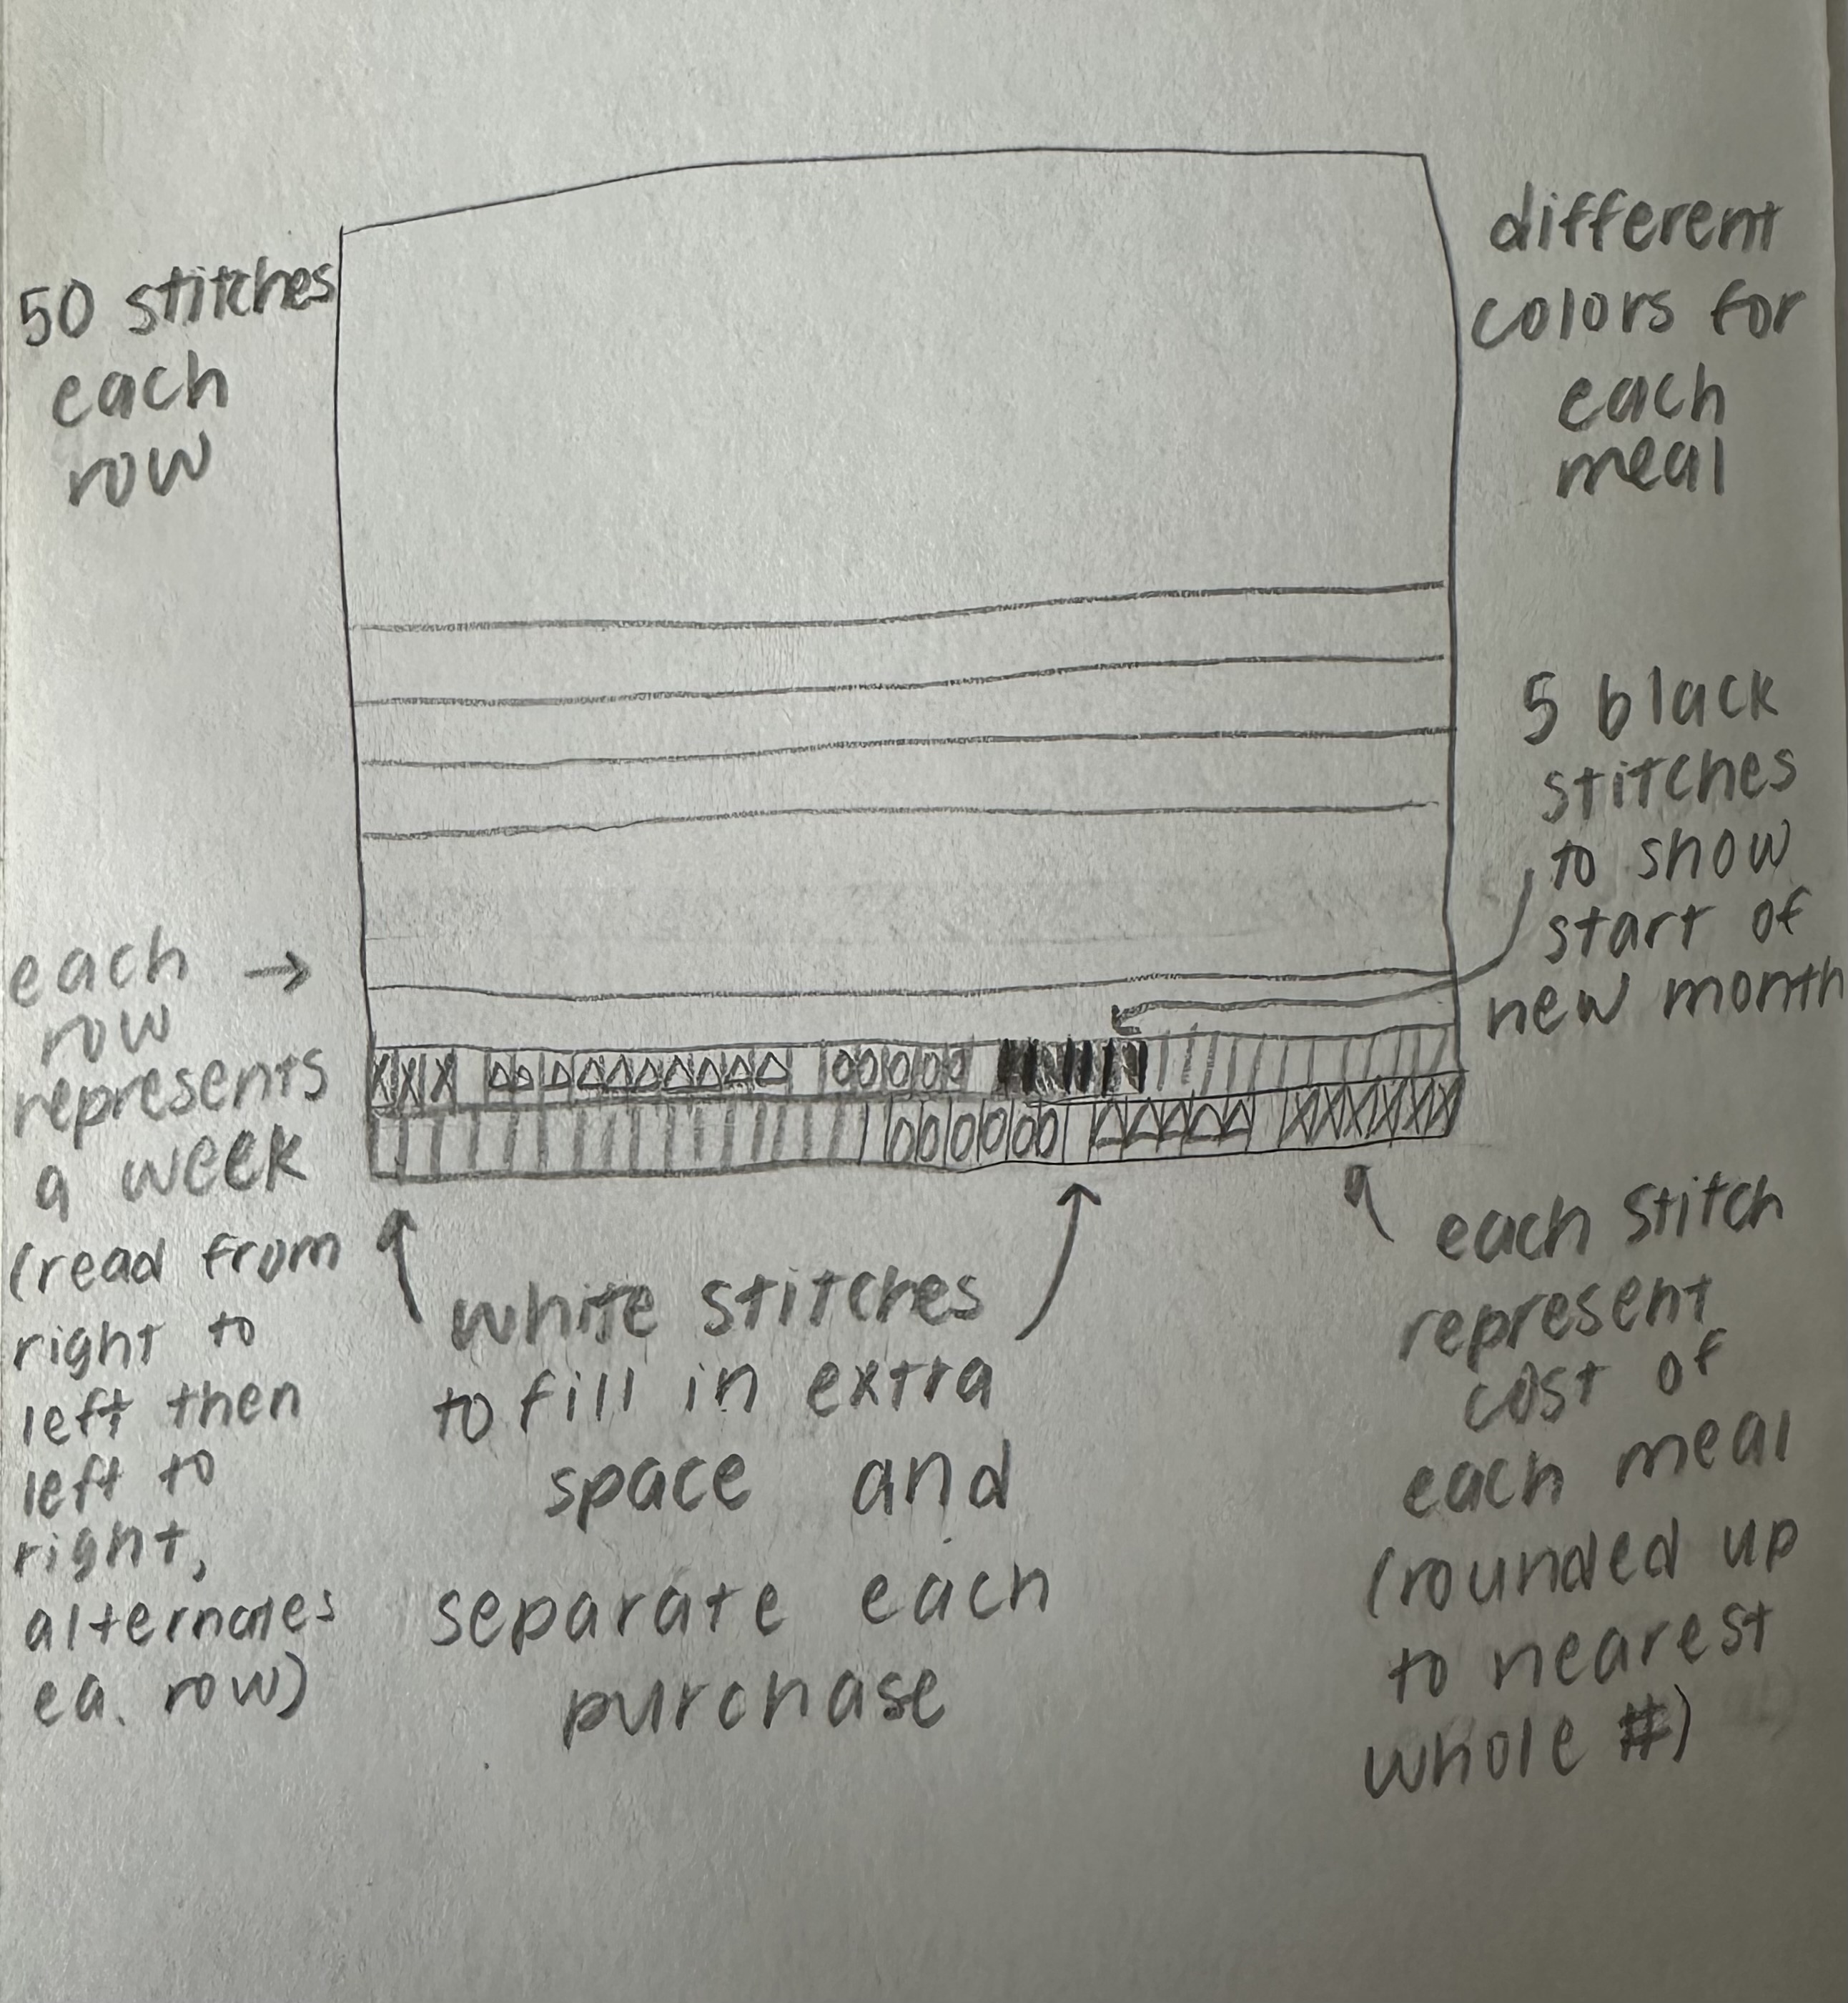 50 stitches
each
row
different
colors for
each
meal
5 black
stitches
to show
start of
new month
each →
row
represents
a week
(read from
right to
left then
left to
right,
alternates
ea. row)
white stitches
to fill in extra
space and
separate each
purchase
each stitch
represent
cost of
each meal
(rounded up
to nearest
whole #)